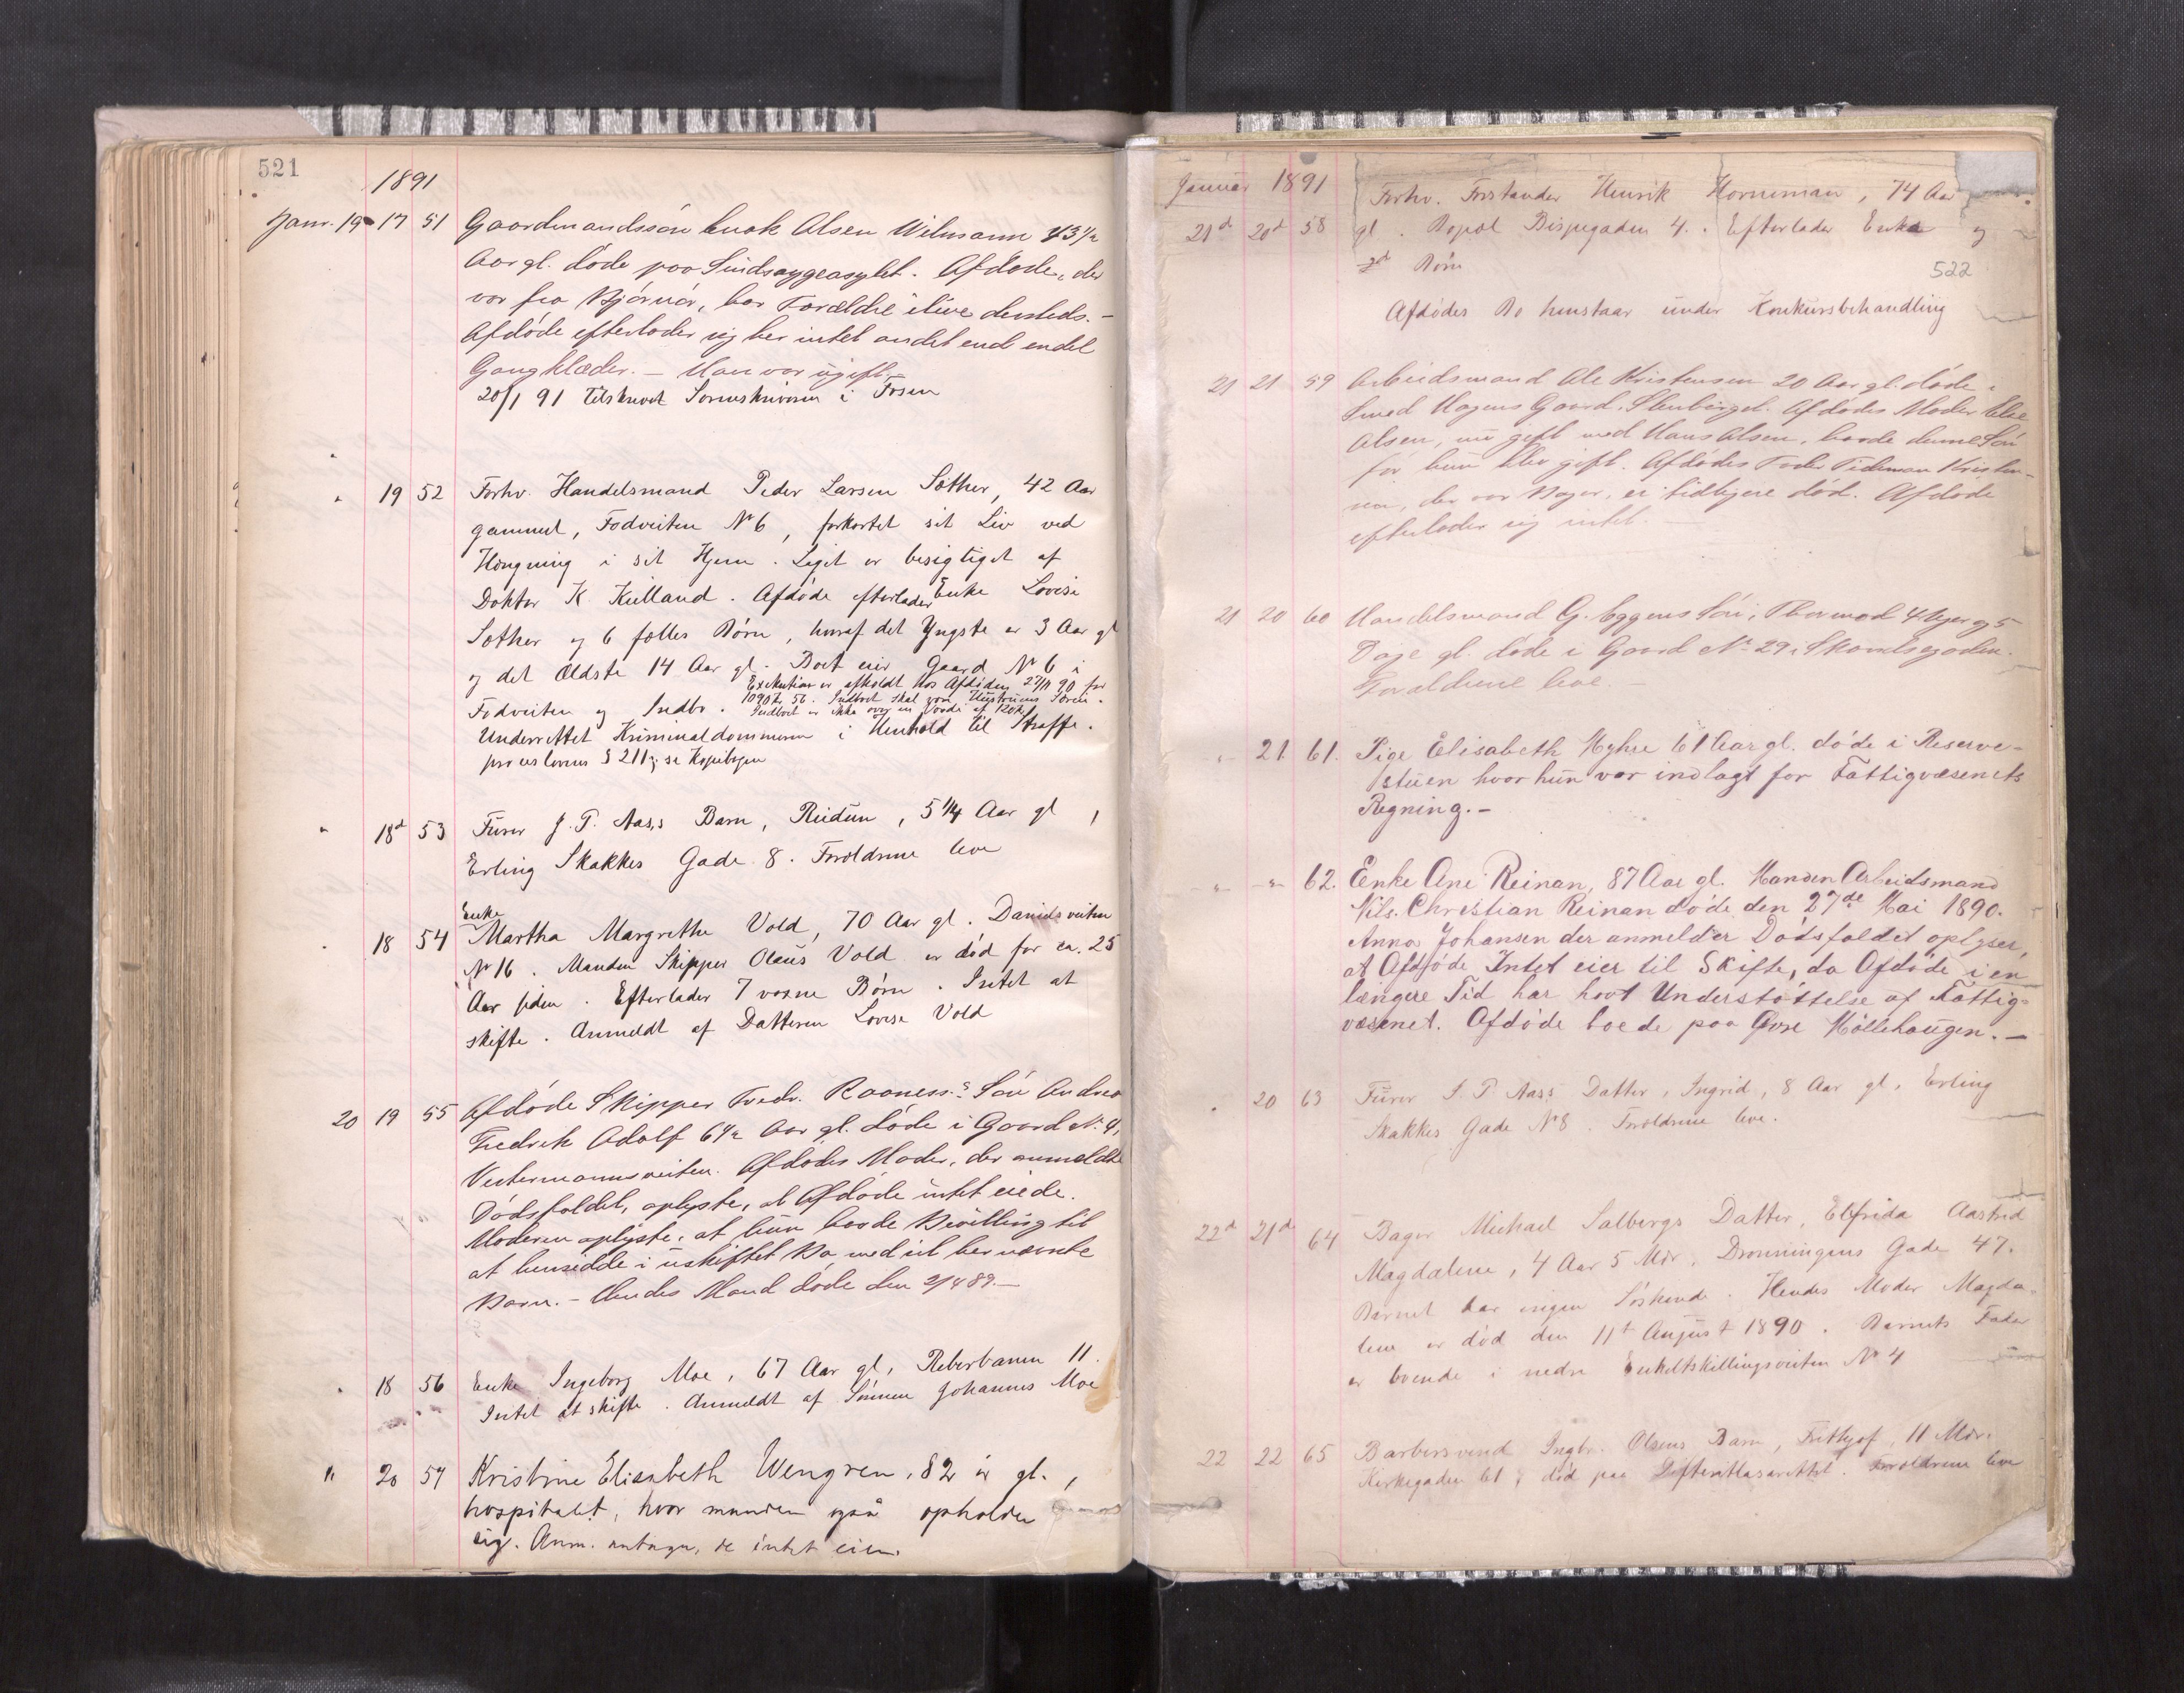 521
1891
Janr. 19 17 51 Gaardmandssøn Enok Olsen Wilmann 43 1/2
Aar gl. døde paa Sindsygeasylet. Afdøde, der
var fra Bjørnør, har Forældre ilive dersteds. –
Afdøde efterlader sig her intet andet end endel
Gangklæder. – Han var ugift. –
20/1 91 Tilskrevet Sorenskriveren i Fosen
" 19 52 Forhv. Handelsmand Peder Larsen Sæther, 42 Aar
gammel, Fodveiten № 6, forkortet sit Liv ved
Hængning i sit Hjem. Liget er besigtiget af
Doktor K. Kielland. Afdøde efterlader Enke Lovise
Sæther og 6 fælles Børn, hvoraf det Yngste er 3 Aar gl
og det Ældste 14 Aar gl. Boet eier Gaard № 6 i
Exekution er afholdt hos Afdøde 27/11 90 for
1090 Kr. 56. Indboet skal være Hustruens Særeie.
Fodveiten og Indbo. Indboet er ikke over en Værdi af 120 Kr
Underrettet Kriminaldommeren i Henhold til Straffe-
proceslovens § 211; se Kopibogen
" 18d 53 Furer J. P. Aas's Barn, Reidun, 5 1/4 Aar gl,
Erling Skakkes Gade 8. Forældrene leve
Enke
" 18 54 Martha Margrethe Vold, 70 Aar gl. Danielsveiten
№ 16. Manden Skipper Olaus Vold er død for ca. 25
Aar siden. Efterlader 7 voxne Børn. Intet at
skifte. Anmeldt af Datteren Lovise Vold
20 19 55 Afdøde Skipper Fredr. Raaness's Søn Andreas
Fredrik Adolf 6 1/2 Aar gl. døde i Gaard N. 4,
Vestermannsveiten. Afdødes Moder, der anmeldte
Dødsfaldet, oplyste, at Afdøde intet eiede.
Moderen oplyste, at hun havde Bevilling til
at hensidde i uskiftet Bo med sit her nævnte
Barn. – Hendes Mand døde den 2/4 89. –
" 18 56 Enke Ingeborg Moe, 67 Aar gl, Reberbanen 11.
Intet at skifte. Anmeldt af Sønnen Johannes Moe
" 20 57 Kristine Elisabeth Wengren, 82 år gl.,
hospitalet, hvor manden også opholder
sig. Anm. antager, de intet eier.
Januar 1891
Forhv. Forstander Henrik Horneman, 74 Aar
21d 20d 58 gl. Bopæl Bispegaden 4. Efterlader Enke og
Børn
522
Afdødes Bo henstaar under Konkursbehandling
21 21 59 Arbeidsmand Ole Kristensen 20 Aar gl. døde i
Smed Hagens Gaard, Stenberget. Afdødes Moder Else
Olsen, nu gift med Hans Olsen, havde denne Søn
før hun blev gift. Afdødes Fader Tideman Kristen-
sen, der var Bager, er tidligere død. Afdøde
efterlader sig intet. –
21 20 60 Handelsmand G. Eggens Søn, Thormod 4 Uger og 5
Dage gl. døde i Gaard № 29 i
Forældrene leve. –
" 21 61. Pige Elisabeth Myhre 61 Aar gl. døde i Reserve-
stuen hvor hun var indlagt for Fattigvæsenets
Regning. –
" " 62. Enke Ane Reinan, 87 Aar gl. Manden Arbeidsmand
Nils Christian Reinan døde den 27de Mai 1890.
Anna Johansen der anmelder Dødsfaldet oplyser,
at Afdøde Intet eier til Skifte, da Afdøde i en
længere Tid har havt Understøttelse af Fattig-
væsenet. Afdøde boede paa Øvre Møllehaugen. –
" 20 63 Furer J. P. Aas's Datter, Ingrid, 8 Aar gl. Erling
Skakkes Gade № 8. Forældrene leve.
22d 21d 64 Bager Michael Salbergs Datter, Elfrida Aastrid
Magdalene, 4 Aar 5 Mdr, Dronningens Gade 47.
Barnet har ingen Søskende. Hendes Moder Magda-
lene er død den 11t August 1890. Barnets Fader
er boende i nedre Enkeltskillingsveiten № 4
22 22 65 Barbersvend Ingbr. Olsens Barn, Fritjof, 11 Mdr.
Kirkegaden 61; død paa Difteritlasarettet. Forældrene leve